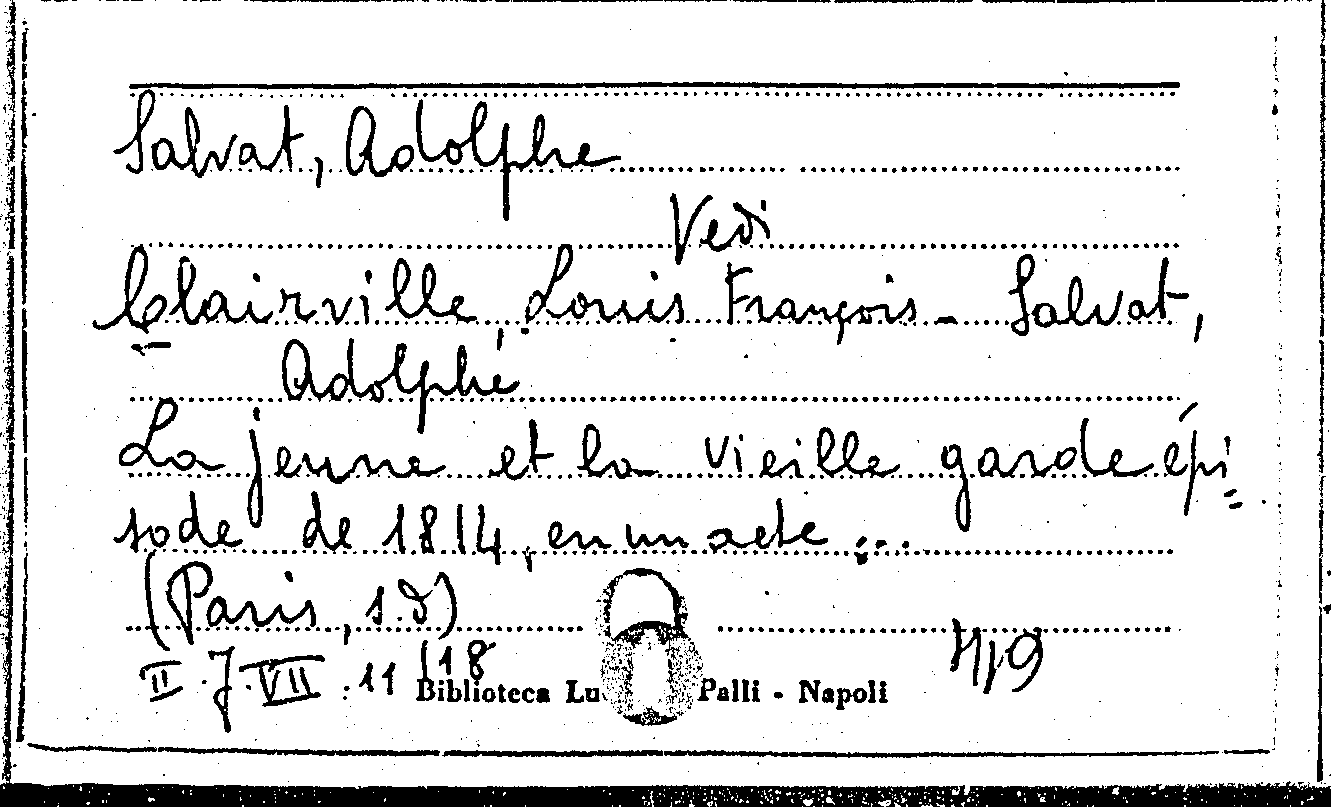 Salvat, Adolphe
Vedi
Clairville, Louis François - Salvat,
Adolphe
La jeune et la vieille garde épi=
sode de 1814, en un acte ...
(Paris, s.d)
II. J. VII : 11 /18
Biblioteca Lu Palli - Napoli